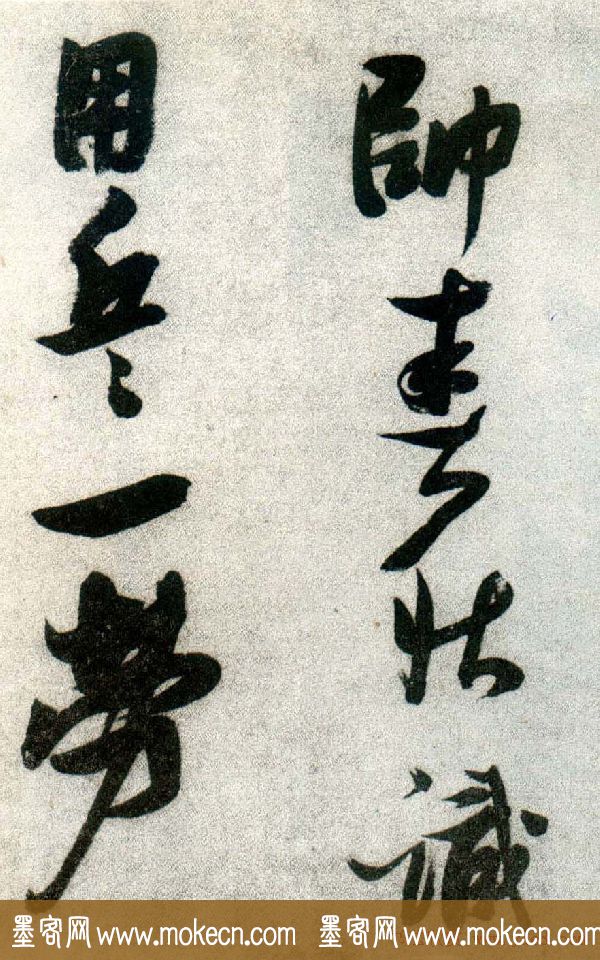 帥 識
用兵一勞
墨客网 www.mokecn.com 墨客网 www.mokecn.com